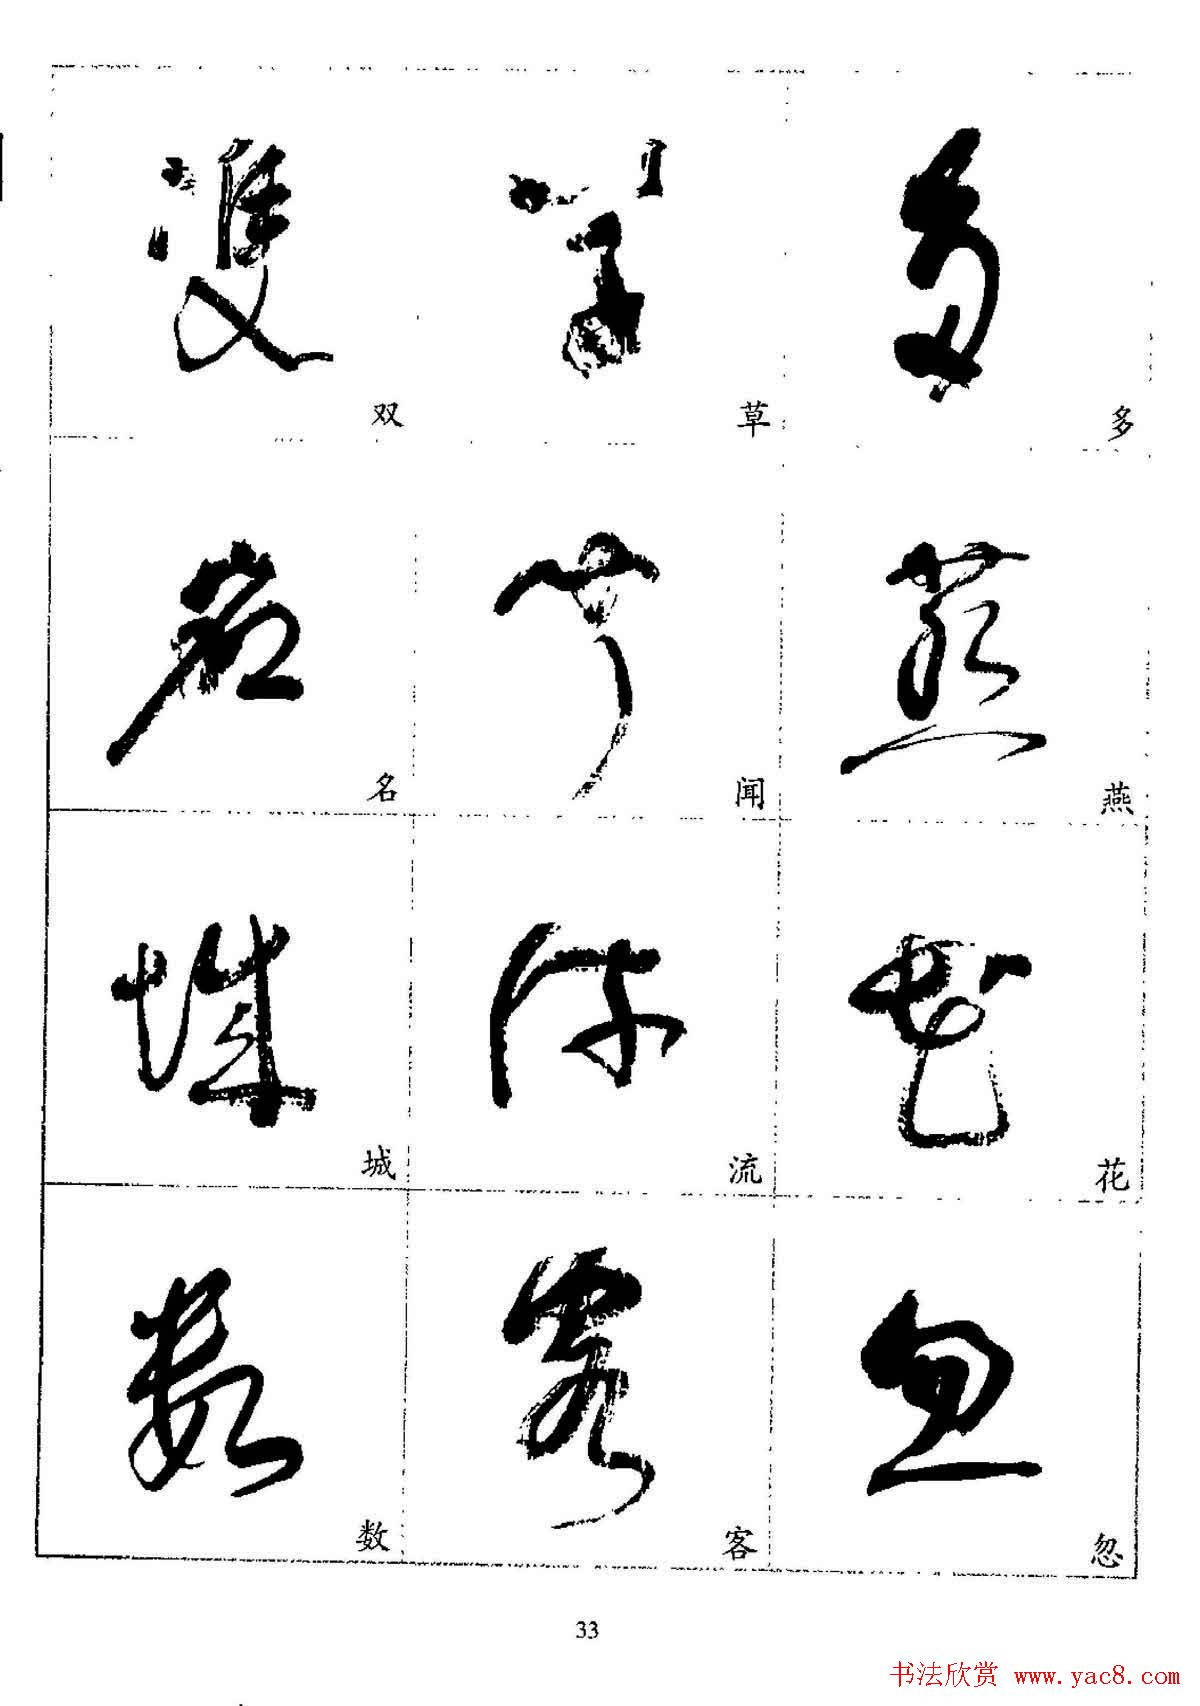 双 草 多
名 闻 燕
城 流 花
数 客 忽
33
书法欣赏 www.yac8.com